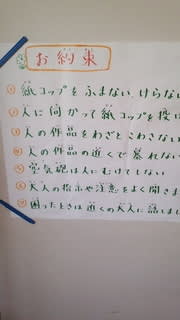 お約束
①紙コップをふまない、けらない
②人に向かって紙コップを投げ
③人の作品をわざとこわさない
④人の作品の近くで暴れない
⑤空気砲は人にむけてしない
⑥大人の指示や注意をよく聞きま
⑦困ったときは近くの大人に話しま